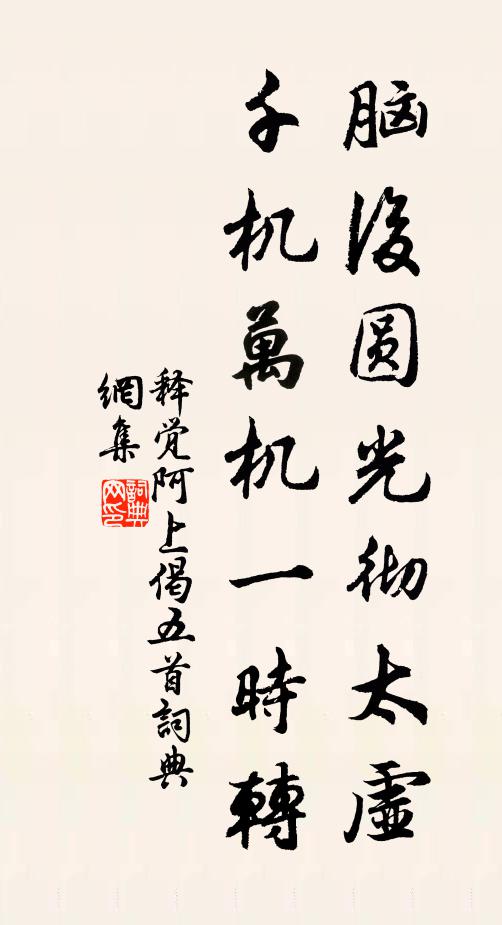 脑後圆光彻太虚
千机萬机一時轉
释觉阿上偈五首詞典
網集
詞典
网印